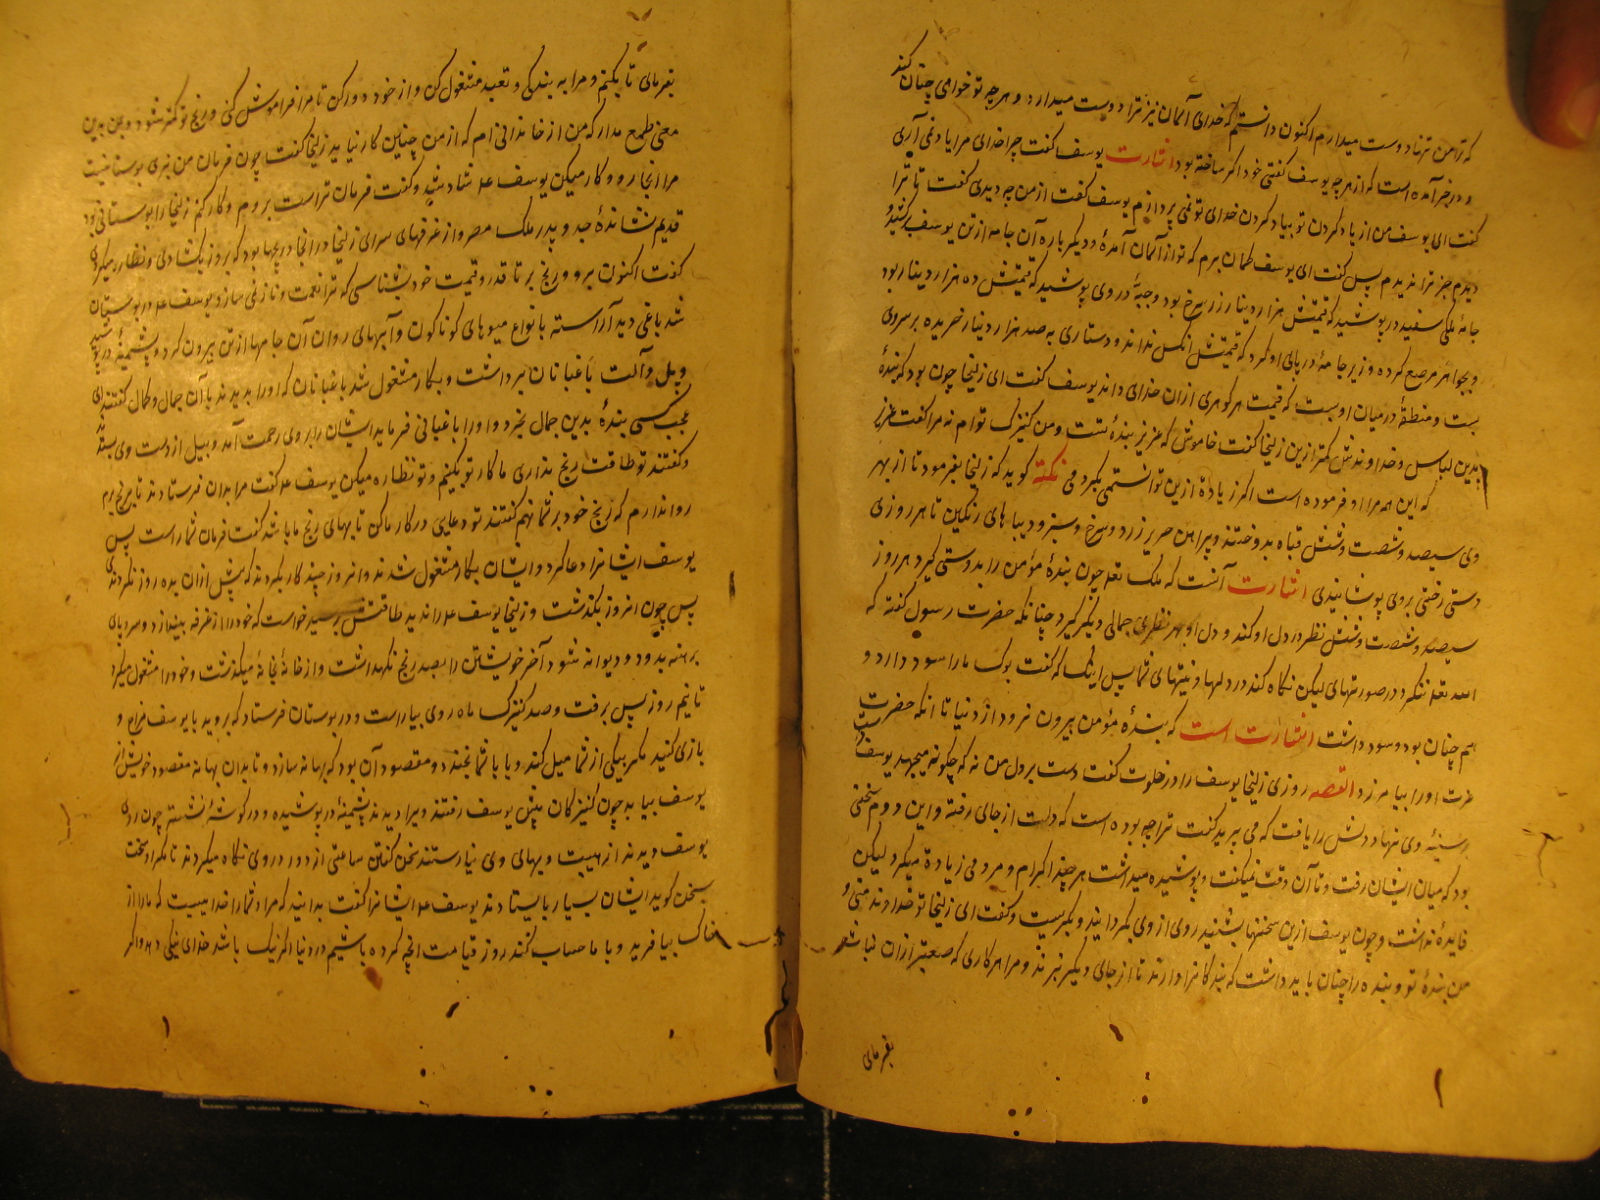 که ترا من تنها دوست میدارم اکنون دانستم که خدای آسمان نیز ترا دوست میدارد و هرچه تو خواهی چنان کند
و در خبر آمده است که از هرچه یوسف گفتی خود اگر ساخته بود اشارت یوسف گفت چرا خدای مرا یاد نمی آری
گفت ای یوسف من از یاد کردن تو بیاد کردن خدای تو نمی پردازم یوسف گفت از من چه دیدی گفت تا ترا
دیدم جز ترا ندیدم پس گفت ای یوسف گمان برم که تو از آسمان آمدهٔ و دیگر باره آن جامه از تن یوسف برکشید و
جامهٔ ملکی سفید در پوشید که قیمتش هزار دینار زر سرخ بود و جبهٔ در وی پوشید که قیمتش ده هزار دینار بود
و بجواهر مرصع کرده و زیر جامهٔ در پای او کرد که قیمتش کس نداند و دستاری به صد هزار دینار خریده بر سر وی
بست و منطقهٔ در میان او بست که قیمت هر گوهری ازان خدای داند یوسف گفت ای زلیخا چون بود که بندهٔ
بدین لباس و خداوندش کمتر ازین زلیخا گفت خاموش که عزیز بندهٔ تست و من کنیزک توام نه مرا گفت عزیز
که این همه مرا او فرموده است اگر زیادهٔ ازین توانستمی بکردمی نکته گوید که زلیخا بفرمود تا از بهر
وی سیصد و شصت و شش قباه بدوختند و پیراهن حریر زرد و سرخ و سبز و دیباهای رنگین تا هر روزی
دستی رختی بروی پوشانیدی اشارت آنست که ملک تعالی چون بندهٔ مؤمن را بدوستی گیرد هر روز
سیصد و شصت و شش نظر در دل او کند و دل او بهر نظری جمالی دیگر گیرد چنانکه حضرت رسول گفته که
الله تعالی ننگرد در صورتهای لیکن نگاه کند در دلها و نیتهای شما پس اینک که گفت بوک ما را سود دارد و
هم چنان بود و سود داشت اشارت است که بندهٔ مؤمن بیرون نرود از دنیا تا آنکه حضرت
عزت او را بیامرزد القصه روزی زلیخا یوسف را در خلوت گفت دست بر دل من نه که چگونه میجهد یوسف دست
بر سینهٔ وی نهاد و دلش را یافت که می پرید گفت ترا چه بوده است که دلت از جای رفته و این دوم سختی
بود که میان ایشان رفت و تا آن وقت نمیگفت و پوشیده میداشت هر چند اکرام و مردمی زیادهٔ میکرد لیکن
فایدهٔ نداشت و چون یوسف ازین سخنها بشنید روی از وی بگردانید و بگریست و گفت ای زلیخا تو خداوند منی و
من بندهٔ تو و بنده را چنان باید داشت که بندگان را دارند تا از جای دیگر نبرند و مرا هر کاری که صعبتر ازان نباشد
بفرمای
بفرمائی تا بکنم و مرا به بندگی و تعبد مشغول کن و از خود دور کن تا مرا فراموش کنی و رنج تو کمتر شود و بمن بدین
معنی طمع مدار که من از خاندانی ام که از من چنین کار نیاید زلیخا گفت چون فرمان من نبری بوستانیست
مرا آنجا رو و کار میکن یوسف علیه شاد شد و گفت فرمان تراست بروم و کار کنم زلیخا را بوستانی بود
قدیم نشاندهٔ جد و پدر ملک مصر و از غرفهای سرای زلیخا در آنجا دریچها بود که هر روز بگشادی و نظاره میکردی
گفت اکنون برو و رنج بر تا قدر و قیمت خود بشناسی که ترا نعمت و ناز نمی سازد یوسف علیه در بوستان
شد باغی دید آراسته بانواع میوهای گوناگون و آبهای روان آن جامها از تن بیرون کرد و پشمینهٔ در پوشید
و بیل و آلت باغبانان برداشت و بکار مشغول شد باغبانان که او را بدیدند با آن جمال و کمال گفتند ای
عجب کسی بندهٔ بدین جمال بخرد و او را باغبانی فرماید ایشان را بر وی رحمت آمد و بیل از دست وی بستدند
و گفتند تو طاقت رنج نداری ما کار تو بکنیم و تو نظاره میکن یوسف علیه گفت مرا بدان فرستادند تا رنج برم
روا ندارم که رنج خود بر شما نهم گفتند تو دعایی در کار ما کن تا بهای رنج ما باشد گفت فرمان شماراست پس
یوسف ایشانرا دعا کرد و ایشان بکار مشغول شدند و آنروز چند کار بکردند که پیش ازان بده روز نکردندی
پس چون آنروز بگذشت و زلیخا یوسف علیه را ندید طاقتش برسید خواست که خود را از غرفه بیندازد و سر و پای
برهنه بدود و دیوانه شود آخر خویشتن را بصد رنج نگهداشت و از خانهٔ بخانهٔ میگذشت و خود را مشغول میکرد
تا نیم روز پس برفت و صد کنیزک ماه روی بیاراست و در بوستان فرستاد که بروید با یوسف مزاح و
بازی کنید مگر بیکی از شما میل کند و با شما بخندد و مقصود آن بود که بهانه سازد و تا بدان بهانه مقصود خویش از
یوسف بیابد چون کنیزکان پیش یوسف رفتند ویرا دیدند پشمینهٔ در پوشیده و در گوشهٔ نشسته چون روی
یوسف دیدند از هیبت و بهای وی نیارستند سخن گفتن ساعتی از دور در وی نگاه میکردند تا مگر او نخست
سخن گوید ایشان بسیار بایستادند یوسف علیه ایشانرا گفت بدانید که مرا و شما را خدائیست که ما را از
خاک بیافرید و با ما حساب کند روز قیامت آنچه کرده باشیم در دنیا اگر نیک باشد خدای نیکی دهد و اگر